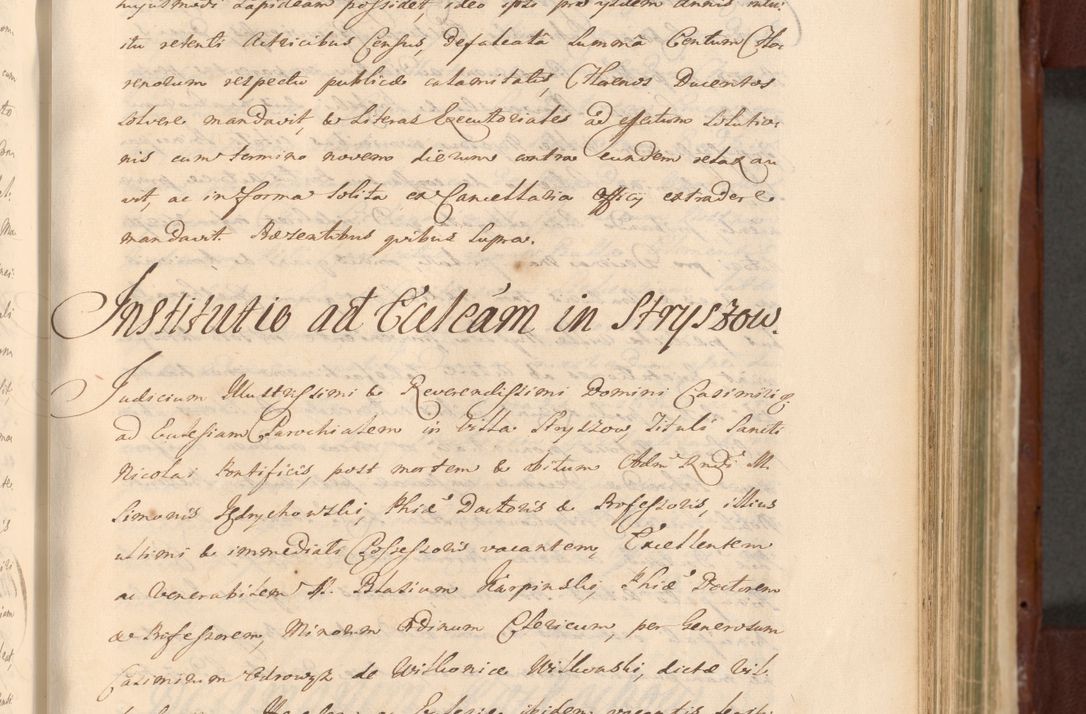 hujusmodi Lapideam possidet, ideo ipsi pro ijsdem annis
itu retenti Actricibus Census, defalcatâ Summâ Centum Flo
renorum respectu publicæ calamitatis, Florenos Ducentos
solvere mandavit, & Literas Executoriales ad effectum solutio
nis cum termino noveno dierum contra eundem relaxa
vit, ac in forma solita ex Cancellaria Officij extradere
mandavit. Præsentibus quibus supra.
Institutio ad Ecclеám in Stryszow.
Judicium Illustrissimi & Reverendissimi Domini Casimiri
ad Ecclesiam Parochialem in Villa Stryszow, Tituli Sancti
Nicolai Pontificis, post mortem & obitum Admi Rndi M.
Simonis Jędrychowski, Phiæ Doctoris & Professoris, illius
ultimi & immediati Possessoris vacantem, Excellentem
ac Venerabilem M. Blasium Karpinski, Phiæ Doctorem
& Professorem, Minorum Ordinum Clericum, per Generosum
Casimirum de Witkonice Witkowski, dictæ Vil:
ac Ecclesiæ ibidem vacantis